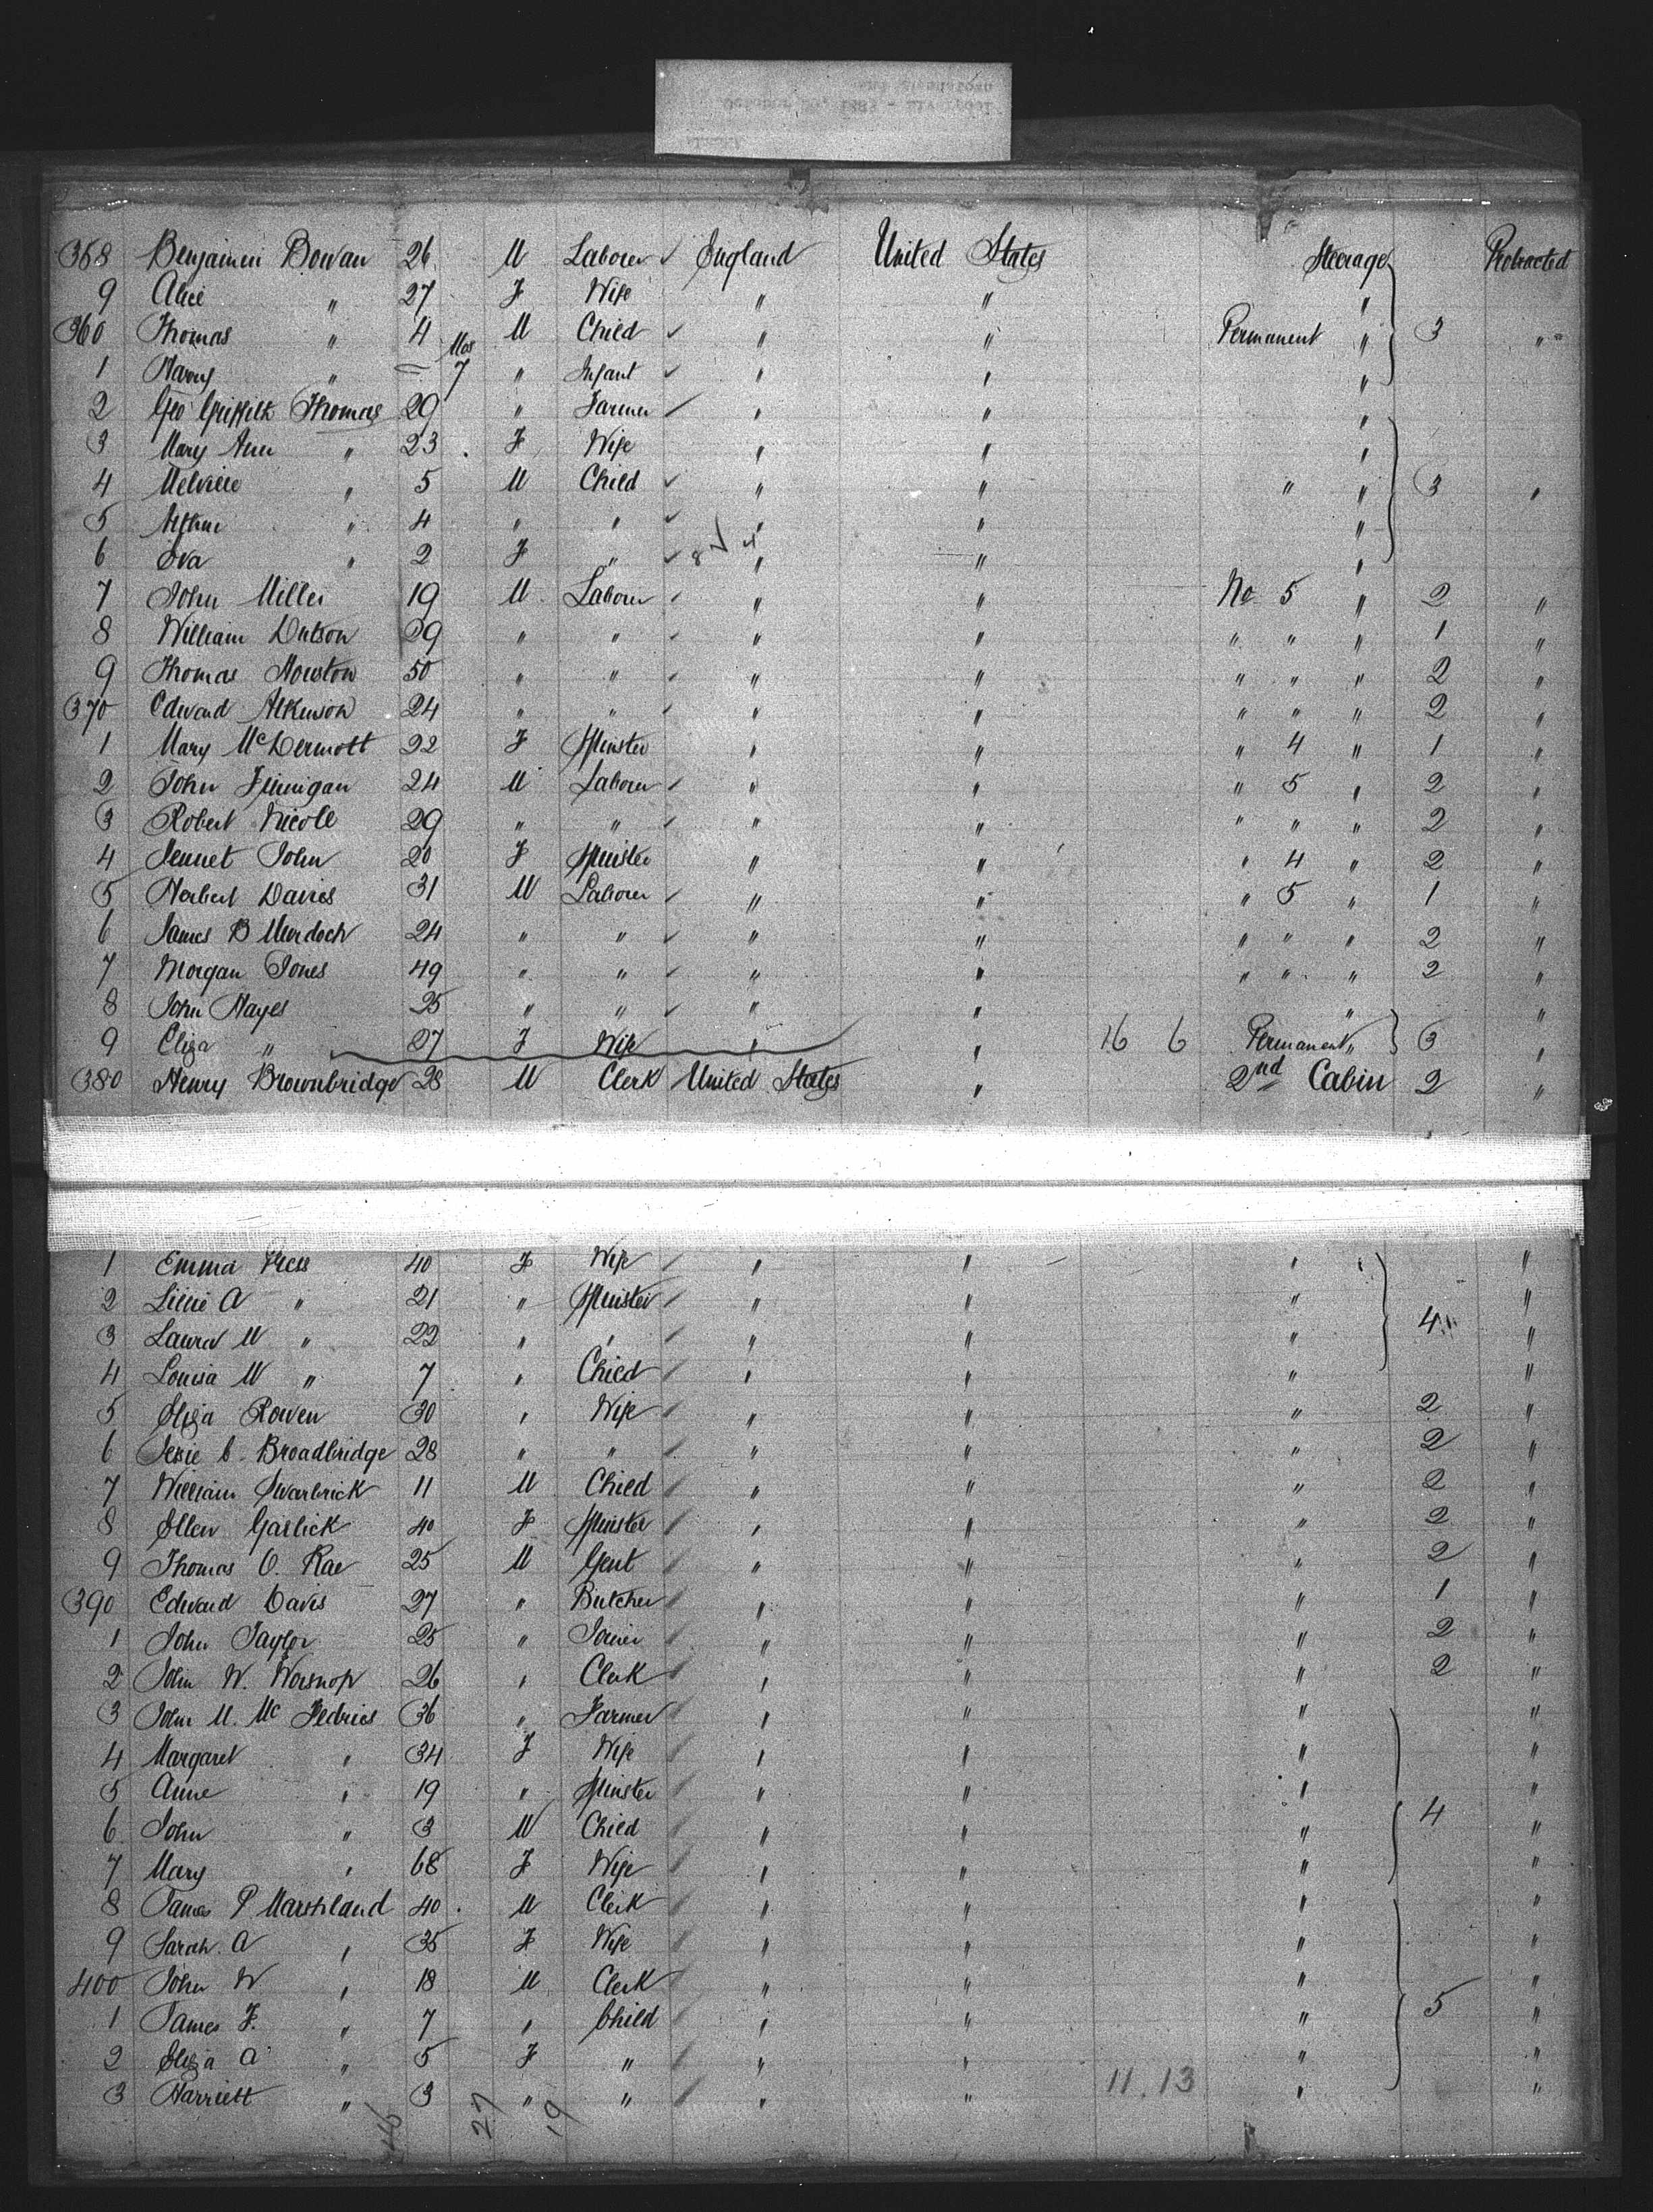 358 Benjamin Bowan 26 M Laborer ✓ England United States Steerage Protracted
9 Alice " 27 F Wife " " "
360 Thomas " 4 M Child ✓ " " Permanent " 3 "
1 Harry " – Mos 7 " Infant ✓ " " "
2 Geo Griffith Thomas 29 " Farmer ✓ " " "
3 Mary Ann " 23 F Wife " " "
4 Melville " 5 M Child ✓ " " " " 3 "
5 Arthur " 4 " " ✓ " " "
6 Eva " 2 F " ✓ " " "
7 John Miller 19 M Laborer ✓ " " No 5 " 2 "
8 William Dutson 29 " " ✓ " " " " " 1 "
9 Thomas Howston 50 " " ✓ " " " " " 2 "
370 Edward Atkinson 24 " " ✓ " " " " " 2 "
1 Mary McDermott 22 F Spinster " " " 4 " 1 "
2 John Finnigan 24 M Laborer ✓ " " " 5 " 2 "
3 Robert Nicole 29 " " ✓ " " " " " 2 "
4 Jennet John 20 F Spinster " " " 4 " 2 "
5 Herbert Davies 31 M Laborer ✓ " " " 5 " 1 "
6 James B Murdoch 24 " " ✓ " " " " " 2 "
7 Morgan Jones 49 " " ✓ " " " " " 2 "
8 John Hayes 25 " " ✓ " " " "
9 Eliza " 27 F Wife " " 16 6 Permanent " 3 "
380 Henry Brownbridge 28 M Clerk United States " 2nd Cabin 2 "
1 Emma Press 40 F Wife " " " "
2 Lillie A " 21 " Spinster " " " "
3 Laura M " 22 " " " " " 4 "
4 Louisa M " 7 " Child " " " "
5 Eliza Rowen 30 " Wife " " " 2 "
6 Jessie C. Broadbridge 28 " " " " " 2 "
7 William Swarbrick 11 M Child " " " 2 "
8 Ellen Garlick 40 F Spinster " " " 2 "
9 Thomas O. Rae 25 M Gent " " " 2 "
390 Edward Davis 27 " Butcher " " " 1 "
1 John Taylor 25 " Joiner " " " 2 "
2 John W. Worsnop 26 " Clerk " " " 2 "
3 John M. Mc Fedries 36 " Farmer " " " "
4 Margaret " 34 F Wife " " " "
5 Anne " 19 " Spinster " " " "
6 John " 3 M Child " " " 4 "
7 Mary " 68 F Wife " " " "
8 James P Marshland 40 M Clerk " " " "
9 Sarah A " 35 F Wife " " " "
400 John W " 18 M Clerk " " " "
1 James F. " 7 " Child " " " 5 "
2 Eliza A " 5 F " " " " "
3 Harriett " 3 " " " " 11.13 " "
27 19